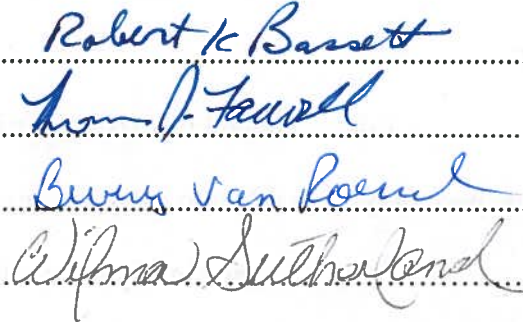 Robert K Bassett
Thomas J. Farrell
Beverly Van
Wilma Sutherland